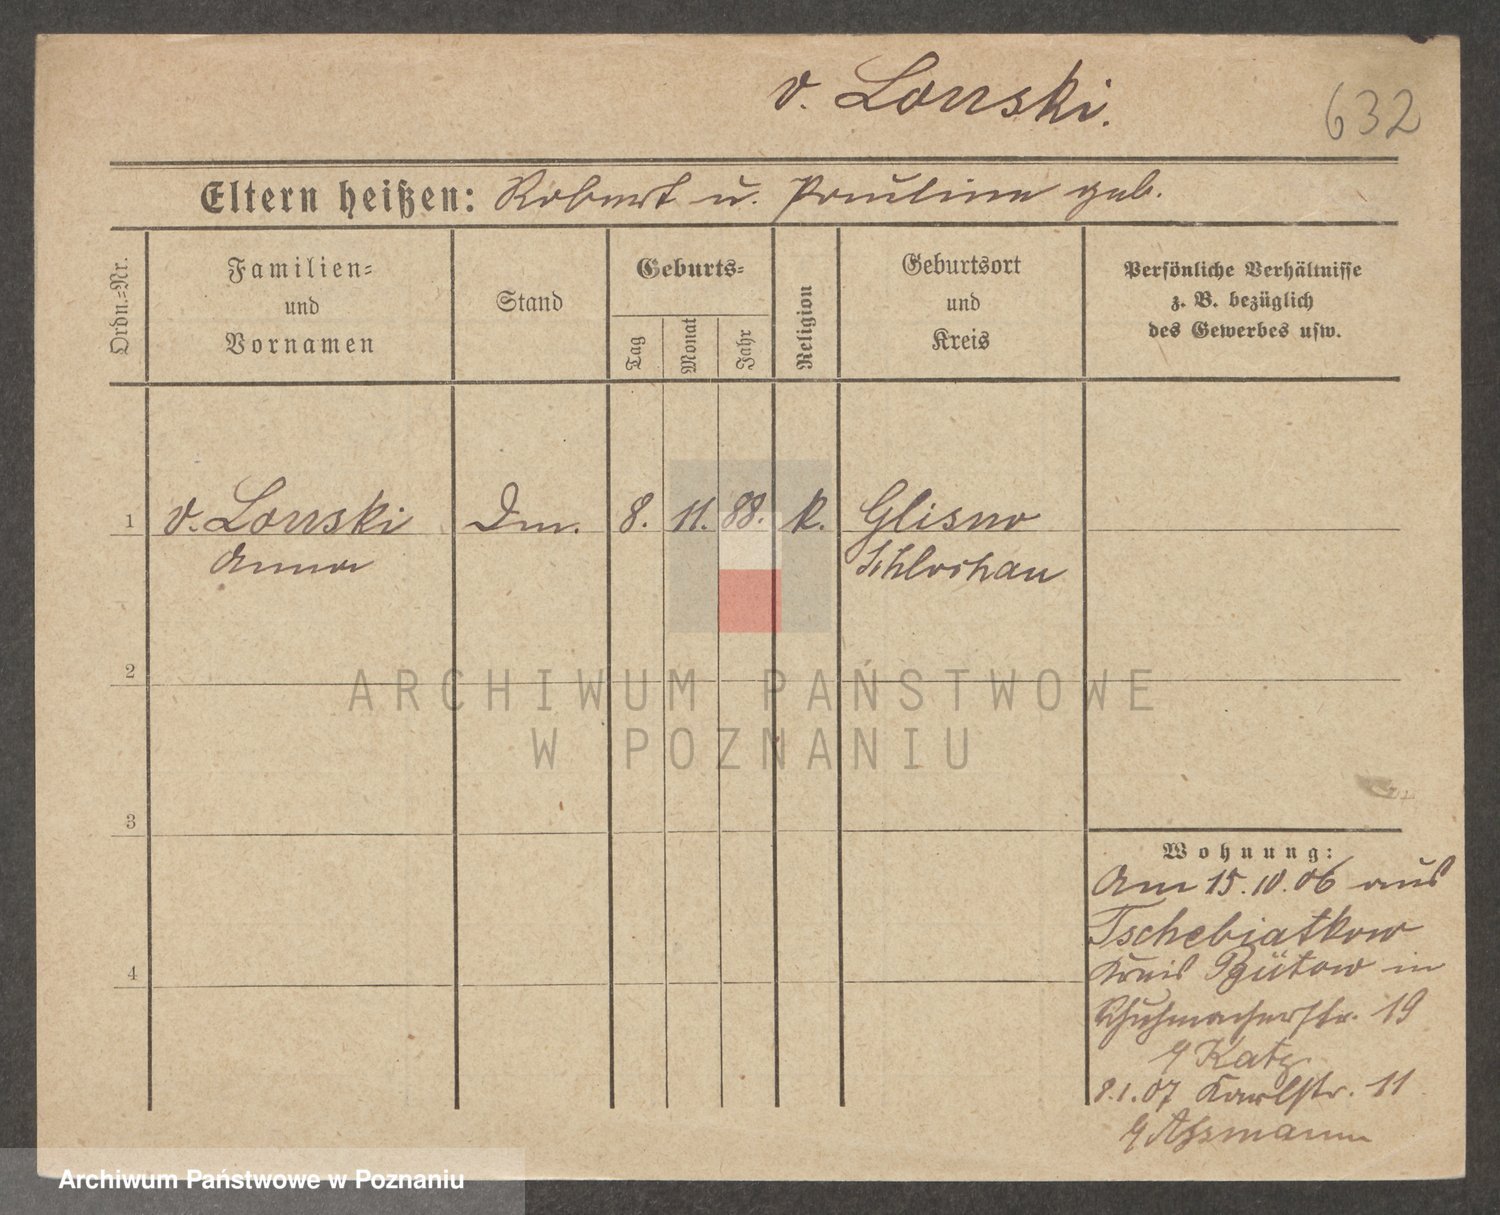 v. Lonski.
632
Eltern heißen: Robert u. Pauline geb.
Ordn.=Nr.
Familien=
und
Vornamen
Stand
Geburts=
Tag
Monat
Jahr
Religion
Geburtsort
und
Kreis
Persönliche Verhältnisse
z. B. bezüglich
des Gewerbes usw.
1 v. Lonski Dm. 8. 11. 88. k. Glisno
Anna Schlochau
2
3
4
Wohnung:
Am 15.10.06 aus
Tschebiatkow
Kreis Bütow in
Schuhmacherstr. 19
Katz
8.1.07 Karlstr. 11
Assmann
ARCHIWUM PAŃSTWOWE
W POZNANIU
Archiwum Państwowe w Poznaniu